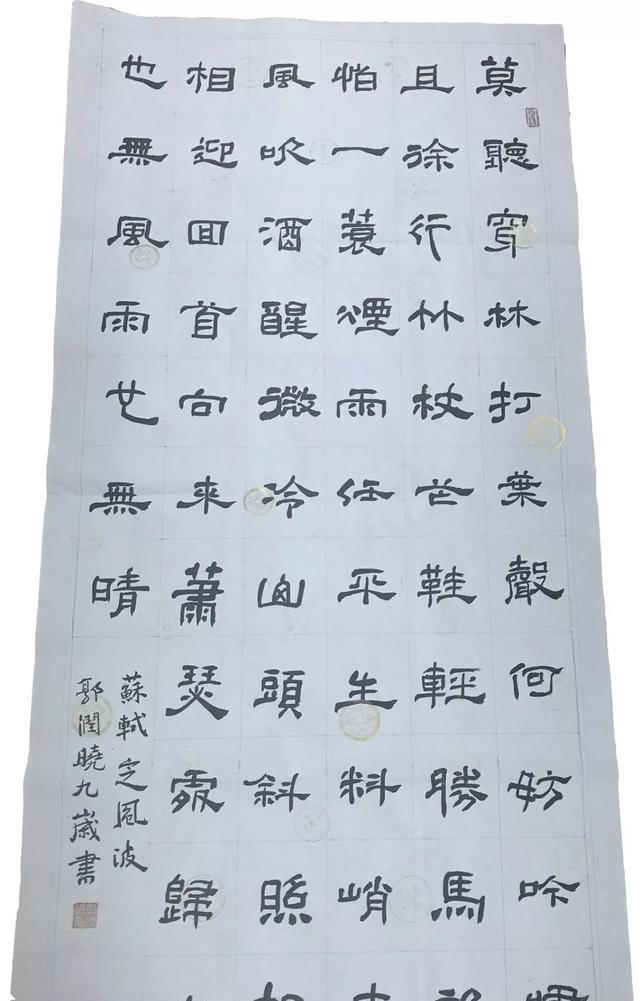 莫聽穿林打葉聲何妨吟
且徐行竹杖芒鞋輕勝馬
怕一蓑煙雨任平生料峭
風吹酒醒微冷山頭斜照
相迎回首向來蕭瑟處歸
也無風雨也無晴
蘇軾定風波
郭潤曉九歲書